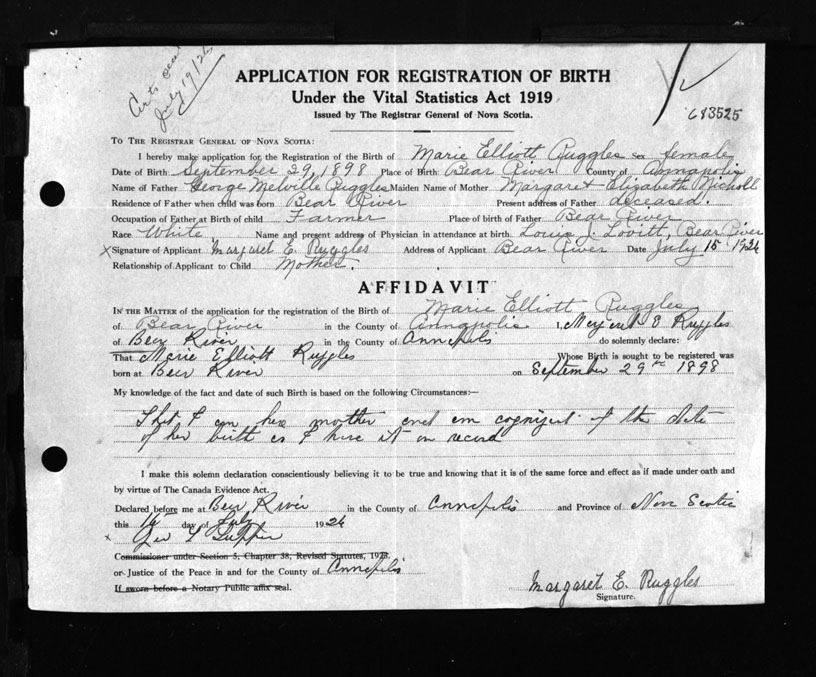 Certs sent
July 19/26
683525
APPLICATION FOR REGISTRATION OF BIRTH
Under the Vital Statistics Act 1919
Issued by The Registrar General of Nova Scotia.
TO THE REGISTRAR GENERAL OF NOVA SCOTIA:
I hereby make application for the Registration of the Birth of Marie Elliott Ruggles sex female
Date of Birth September 29, 1898 Place of Birth Bear River County of Annapolis
Name of Father George Melville Ruggles Maiden Name of Mother Margaret Elizabeth Nicholl
Residence of Father when child was born Bear River Present address of Father deceased.
Occupation of Father at Birth of child Farmer Place of birth of Father Bear River
Race White Name and present address of Physician in attendance at birth Louis J. Lovitt, Bear River
x Signature of Applicant Margaret E. Ruggles Address of Applicant Bear River Date July 15 1926
Relationship of Applicant to Child Mother.
AFFIDAVIT
IN THE MATTER of the application for the registration of the Birth of Marie Elliott Ruggles
of Bear River in the County of Annapolis I, Margaret E Ruggles
of Bear River in the County of Annapolis do solemnly declare:
That Marie Elliott Ruggles Whose Birth is sought to be registered was
born at Bear River on September 29th 1898
My knowledge of the fact and date of such Birth is based on the following Circumstances:—
That I am her mother and am cognizant of the date
of her birth as I have it on record
I make this solemn declaration conscientiously believing it to be true and knowing that it is of the same force and effect as if made under oath and
by virtue of The Canada Evidence Act.
Declared before me at Bear River in the County of Annapolis and Province of Nova Scotia
this 16 day of July 1926
x Geo L Tupper
Commissioner under Section 5, Chapter 38, Revised Statutes, 1923,
or Justice of the Peace in and for the County of Annapolis
If sworn before a Notary Public affix seal.
Margaret E. Ruggles
Signature.